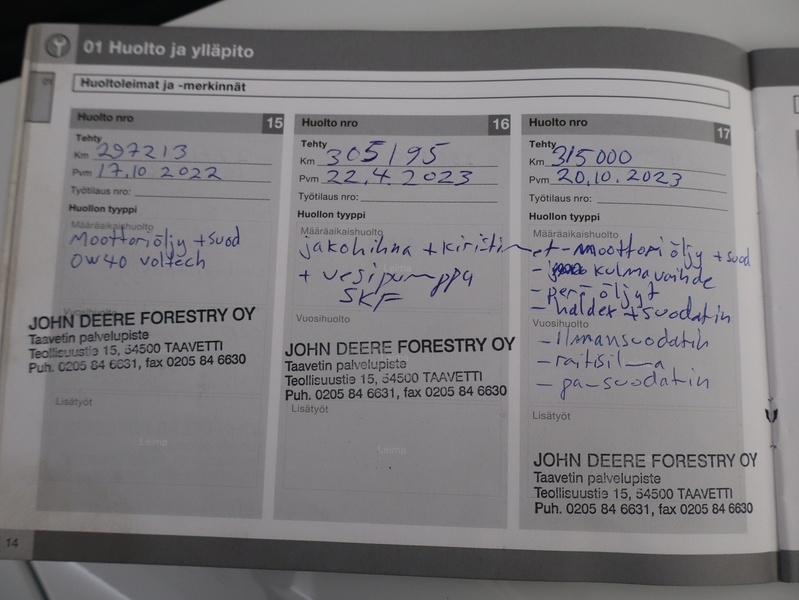 01 Huolto ja ylläpito
01
Huoltoleimat ja -merkinnät
Huolto nro 15
Tehty
Km 297213
Pvm 17.10 2022
Työtilaus nro:
Huollon tyyppi
Määräaikaishuolto
Moottoriöljy + suod
0W40 voltech
Vuosihuolto
JOHN DEERE FORESTRY OY
Taavetin palvelupiste
Teollisuustie 15, 54500 TAAVETTI
Puh. 0205 84 6631, fax 0205 84 6630
Lisätyöt
Leima
Huolto nro 16
Tehty
Km 305195
Pvm 22.4.2023
Työtilaus nro:
Huollon tyyppi
Määräaikaishuolto
jakohihna + kiristimet
+ vesipumppu
SKF
Vuosihuolto
JOHN DEERE FORESTRY OY
Taavetin palvelupiste
Teollisuustie 15, 54500 TAAVETTI
Puh. 0205 84 6631, fax 0205 84 6630
Lisätyöt
Leima
Huolto nro 17
Tehty
Km 315000
Pvm 20.10.2023
Työtilaus nro:
Huollon tyyppi
Määräaikaishuolto
- Moottori öljy + suod
- kulmavaihde
- perä öljyt
- haldex + suodatin
Vuosihuolto
- Ilmansuodatin
- raitisilma
- pa-suodatin
Lisätyöt
JOHN DEERE FORESTRY OY
Taavetin palvelupiste
Teollisuustie 15, 54500 TAAVETTI
Puh. 0205 84 6631, fax 0205 84 6630
14